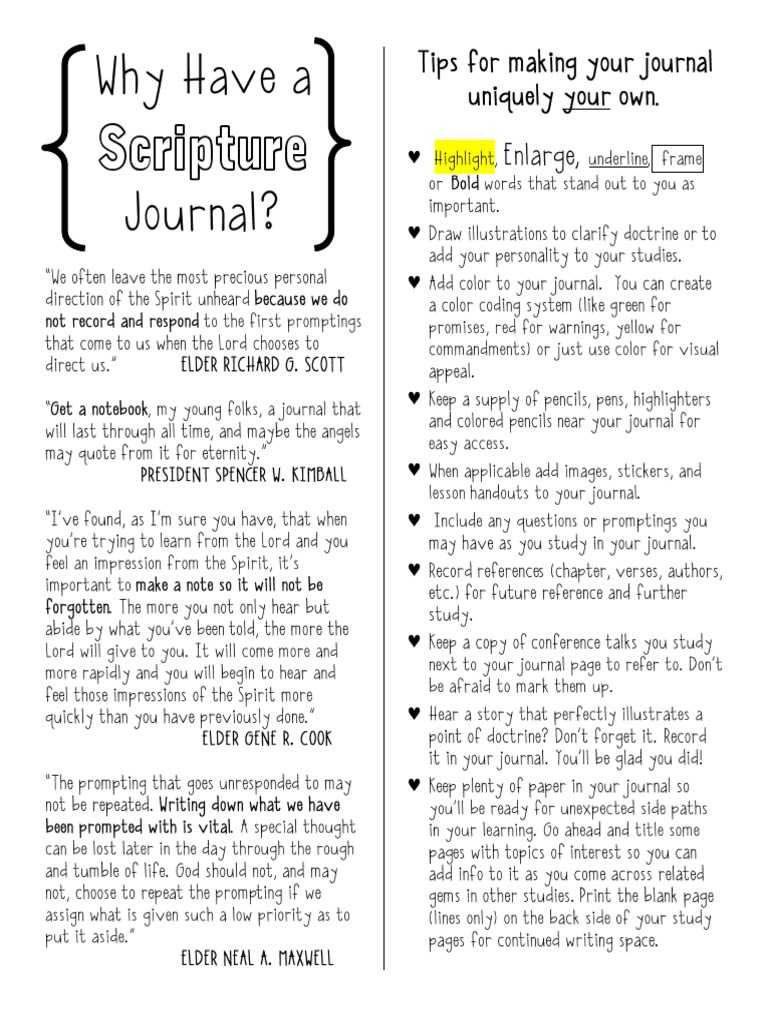 Why Have a
Scripture
Journal?
"We often leave the most precious personal
direction of the Spirit unheard because we do
not record and respond to the first promptings
that come to us when the Lord chooses to
direct us." ELDER RICHARD G. SCOTT
"Get a notebook, my young folks, a journal that
will last through all time, and maybe the angels
may quote from it for eternity."
PRESIDENT SPENCER W. KIMBALL
"I've found, as I'm sure you have, that when
you're trying to learn from the Lord and you
feel an impression from the Spirit, it's
important to make a note so it will not be
forgotten. The more you not only hear but
abide by what you've been told, the more the
Lord will give to you. It will come more and
more rapidly and you will begin to hear and
feel those impressions of the Spirit more
quickly than you have previously done."
ELDER GENE R. COOK
"The prompting that goes unresponded to may
not be repeated. Writing down what we have
been prompted with is vital. A special thought
can be lost later in the day through the rough
and tumble of life. God should not, and may
not, choose to repeat the prompting if we
assign what is given such a low priority as to
put it aside."
ELDER NEAL A. MAXWELL
Tips for making your journal
uniquely your own.
♥ Highlight, Enlarge, underline, frame
or Bold words that stand out to you as
important.
♥ Draw illustrations to clarify doctrine or to
add your personality to your studies.
♥ Add color to your journal. You can create
a color coding system (like green for
promises, red for warnings, yellow for
commandments) or just use color for visual
appeal.
♥ Keep a supply of pencils, pens, highlighters
and colored pencils near your journal for
easy access.
♥ When applicable add images, stickers, and
lesson handouts to your journal.
♥ Include any questions or promptings you
may have as you study in your journal.
♥ Record references (chapter, verses, authors,
etc.) for future reference and further
study.
♥ Keep a copy of conference talks you study
next to your journal page to refer to. Don't
be afraid to mark them up.
♥ Hear a story that perfectly illustrates a
point of doctrine? Don't forget it. Record
it in your journal. You'll be glad you did!
♥ Keep plenty of paper in your journal so
you'll be ready for unexpected side paths
in your learning. Go ahead and title some
pages with topics of interest so you can
add info to it as you come across related
gems in other studies. Print the blank page
(lines only) on the back side of your study
pages for continued writing space.